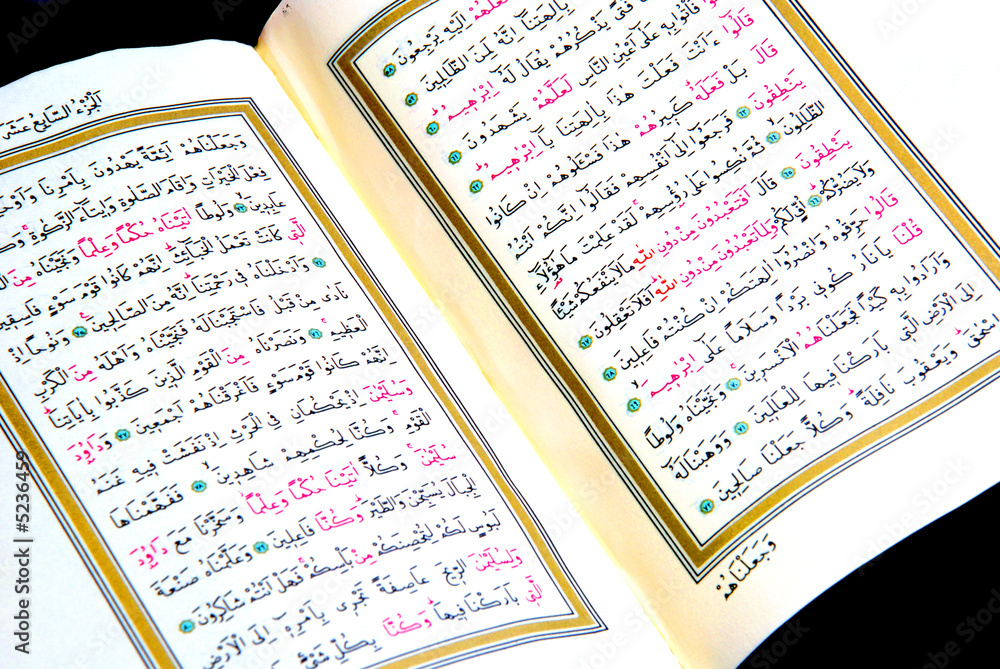 لَعَلَّهُمْ اِلَيْهِ يَرْجِعُونَ ٥٨
بِاٰلِهَتِنَٓا اِنَّهُ لَمِنَ الظَّالِمِينَ ٥٩
فَتًى يَذْكُرُهُمْ يُقَالُ لَهُٓ اِبْرٰهِيمُ ٦٠
قَالُوا فَأْتُوا بِهِ عَلٰٓى اَعْيُنِ النَّاسِ لَعَلَّهُمْ يَشْهَدُونَ ٦١
قَالُٓوا ءَاَنْتَ فَعَلْتَ هٰذَا بِاٰلِهَتِنَا يَٓا اِبْرٰهِيمُ ٦٢
قَالَ بَلْ فَعَلَهُ كَبِيرُهُمْ هٰذَا فَسْـَٔلُوهُمْ اِنْ كَانُوا
يَنْطِقُونَ ٦٣ فَرَجَعُٓوا اِلٰٓى اَنْفُسِهِمْ فَقَالُٓوا اِنَّكُمْ اَنْتُمُ
الظَّالِمُونَ ٦٤ ثُمَّ نُكِسُوا عَلٰى رُؤُسِهِمْ لَقَدْ عَلِمْتَ مَا هٰٓؤُلَٓاءِ
يَنْطِقُونَ ٦٥ قَالَ اَفَتَعْبُدُونَ مِنْ دُونِ اللّٰهِ مَا لَا يَنْفَعُكُمْ شَيْـًٔا
وَلَا يَضُرُّكُمْ ٦٦ اُفٍّ لَكُمْ وَلِمَا تَعْبُدُونَ مِنْ دُونِ اللّٰهِ اَفَلَا تَعْقِلُونَ ٦٧
قَالُوا حَرِّقُوهُ وَانْصُرُٓوا اٰلِهَتَكُمْ اِنْ كُنْتُمْ فَاعِلِينَ ٦٨
قُلْنَا يَا نَارُ كُونِي بَرْدًا وَسَلَامًا عَلٰٓى اِبْرٰهِيمَ ٦٩
وَاَرَادُوا بِهِ كَيْدًا فَجَعَلْنَاهُمُ الْاَخْسَرِينَ ٧٠ وَنَجَّيْنَاهُ وَلُوطًا
اِلَى الْاَرْضِ الَّتِي بَارَكْنَا فِيهَا لِلْعَالَمِينَ ٧١ وَوَهَبْنَا لَهُٓ
اِسْحٰقَ وَيَعْقُوبَ نَافِلَةً وَكُلًّا جَعَلْنَا صَالِحِينَ ٧٢
وَجَعَلْنَاهُمْ
اَلْجُزْءُ السَّابِعُ عَشَرَ
وَجَعَلْنَاهُمْ اَئِمَّةً يَهْدُونَ بِاَمْرِنَا وَاَوْحَيْنَٓا
فِعْلَ الْخَيْرَاتِ وَاِقَامَ الصَّلٰوةِ وَاِيتَٓاءَ الزَّكٰوةِ
عَابِدِينَ ٧٣ وَلُوطًا اٰتَيْنَاهُ حُكْمًا وَعِلْمًا وَنَجَّيْنَاهُ مِنَ
الَّتِي كَانَتْ تَعْمَلُ الْخَبَٓائِثَ اِنَّهُمْ كَانُوا قَوْمَ سَوْءٍ فَاسِقِينَ
٧٤ وَاَدْخَلْنَاهُ فِي رَحْمَتِنَا اِنَّهُ مِنَ الصَّالِحِينَ ٧٥ وَنُوحًا اِذْ
نَادٰى مِنْ قَبْلُ فَاسْتَجَبْنَا لَهُ فَنَجَّيْنَاهُ وَاَهْلَهُ مِنَ الْكَرْبِ
الْعَظِيمِ ٧٦ وَنَصَرْنَاهُ مِنَ الْقَوْمِ الَّذِينَ كَذَّبُوا بِاٰيَاتِنَا
اِنَّهُمْ كَانُوا قَوْمَ سَوْءٍ فَاَغْرَقْنَاهُمْ اَجْمَعِينَ ٧٧ وَدَاوُدَ
وَسُلَيْمٰنَ اِذْ يَحْكُمَانِ فِي الْحَرْثِ اِذْ نَفَشَتْ فِيهِ غَنَمُ
الْقَوْمِ وَكُنَّا لِحُكْمِهِمْ شَاهِدِينَ ٧٨ فَفَهَّمْنَاهَا
سُلَيْمٰنَ وَكُلًّا اٰتَيْنَا حُكْمًا وَعِلْمًا وَسَخَّرْنَا مَعَ دَاوُدَ
الْجِبَالَ يُسَبِّحْنَ وَالطَّيْرَ وَكُنَّا فَاعِلِينَ ٧٩ وَعَلَّمْنَاهُ صَنْعَةَ
لَبُوسٍ لَكُمْ لِتُحْصِنَكُمْ مِنْ بَأْسِكُمْ فَهَلْ اَنْتُمْ شَاكِرُونَ ٨٠
وَلِسُلَيْمٰنَ الرِّيحَ عَاصِفَةً تَجْرِي بِاَمْرِهِٓ اِلَى الْاَرْضِ
الَّتِي بَارَكْنَا فِيهَا وَكُنَّا بِكُلِّ شَيْءٍ
Adobe Stock | #5236459